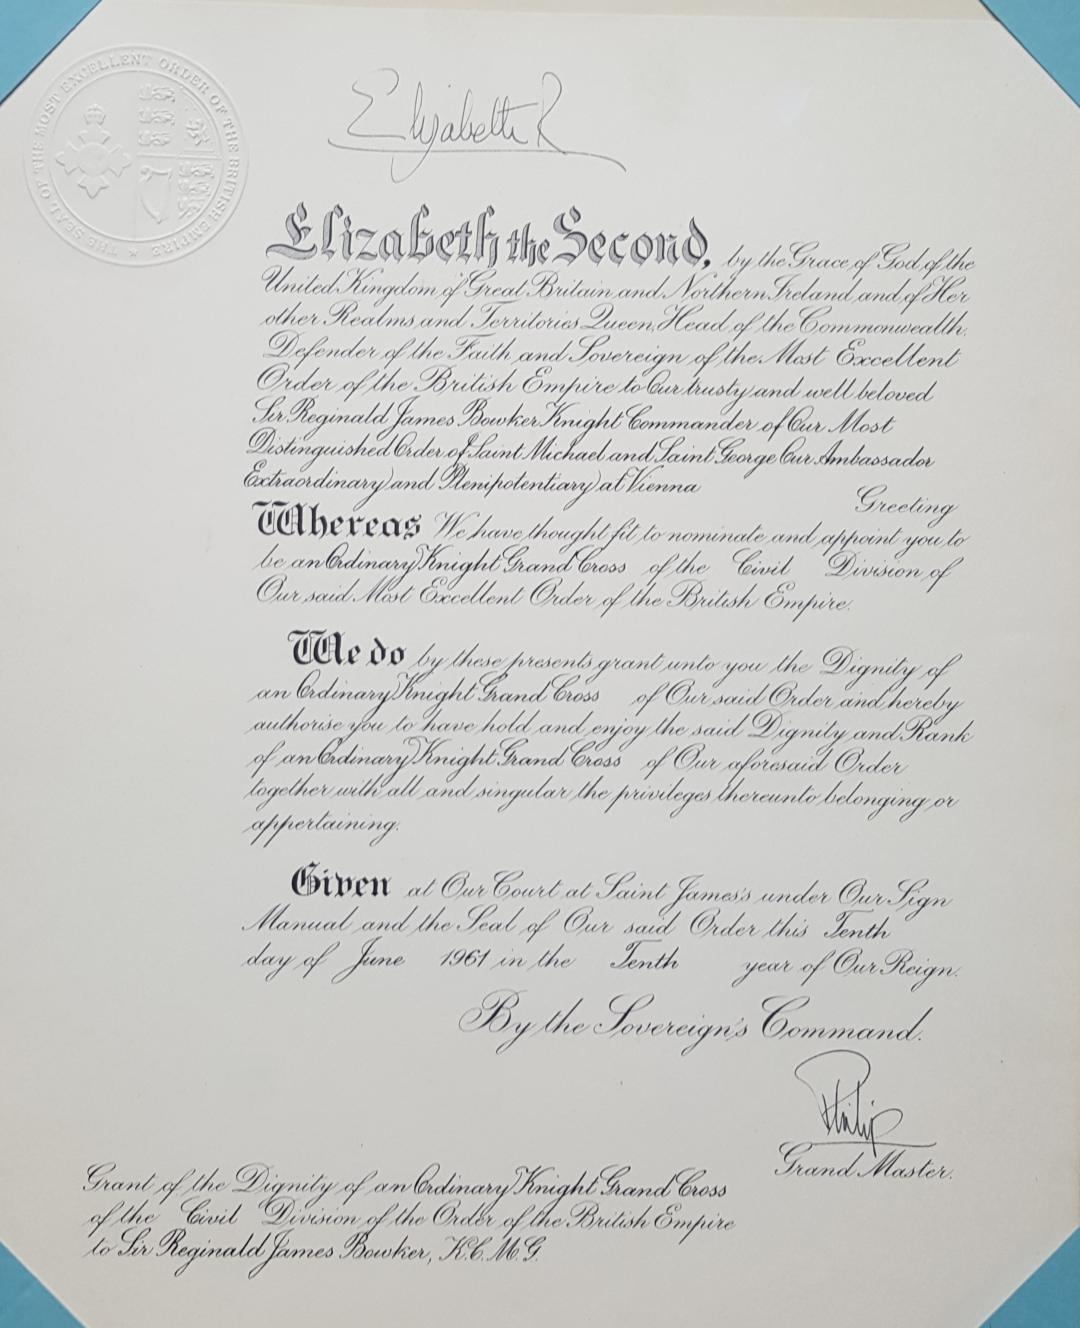 THE SEAL OF THE MOST EXCELLENT ORDER OF THE BRITISH EMPIRE ★
Elizabeth R
Elizabeth the Second, by the Grace of God, of the
United Kingdom of Great Britain and Northern Ireland and of Her
other Realms and Territories Queen, Head of the Commonwealth,
Defender of the Faith and Sovereign of the Most Excellent
Order of the British Empire to Our trusty and well beloved
Sir Reginald James Bowker Knight Commander of Our Most
Distinguished Order of Saint Michael and Saint George Our Ambassador
Extraordinary and Plenipotentiary at Vienna
Greeting
Whereas We have thought fit to nominate and appoint you to
be an Ordinary Knight Grand Cross of the Civil Division of
Our said Most Excellent Order of the British Empire.
We do by these presents grant unto you the Dignity of
an Ordinary Knight Grand Cross of Our said Order and hereby
authorise you to have hold and enjoy the said Dignity and Rank
of an Ordinary Knight Grand Cross of Our aforesaid Order
together with all and singular the privileges thereunto belonging or
appertaining.
Given at Our Court at Saint James's under Our Sign
Manual and the Seal of Our said Order this Tenth
day of June 1961 in the Tenth year of Our Reign.
By the Sovereign's Command.
Philip
Grand Master.
Grant of the Dignity of an Ordinary Knight Grand Cross
of the Civil Division of the Order of the British Empire
to Sir Reginald James Bowker, K.C.M.G.